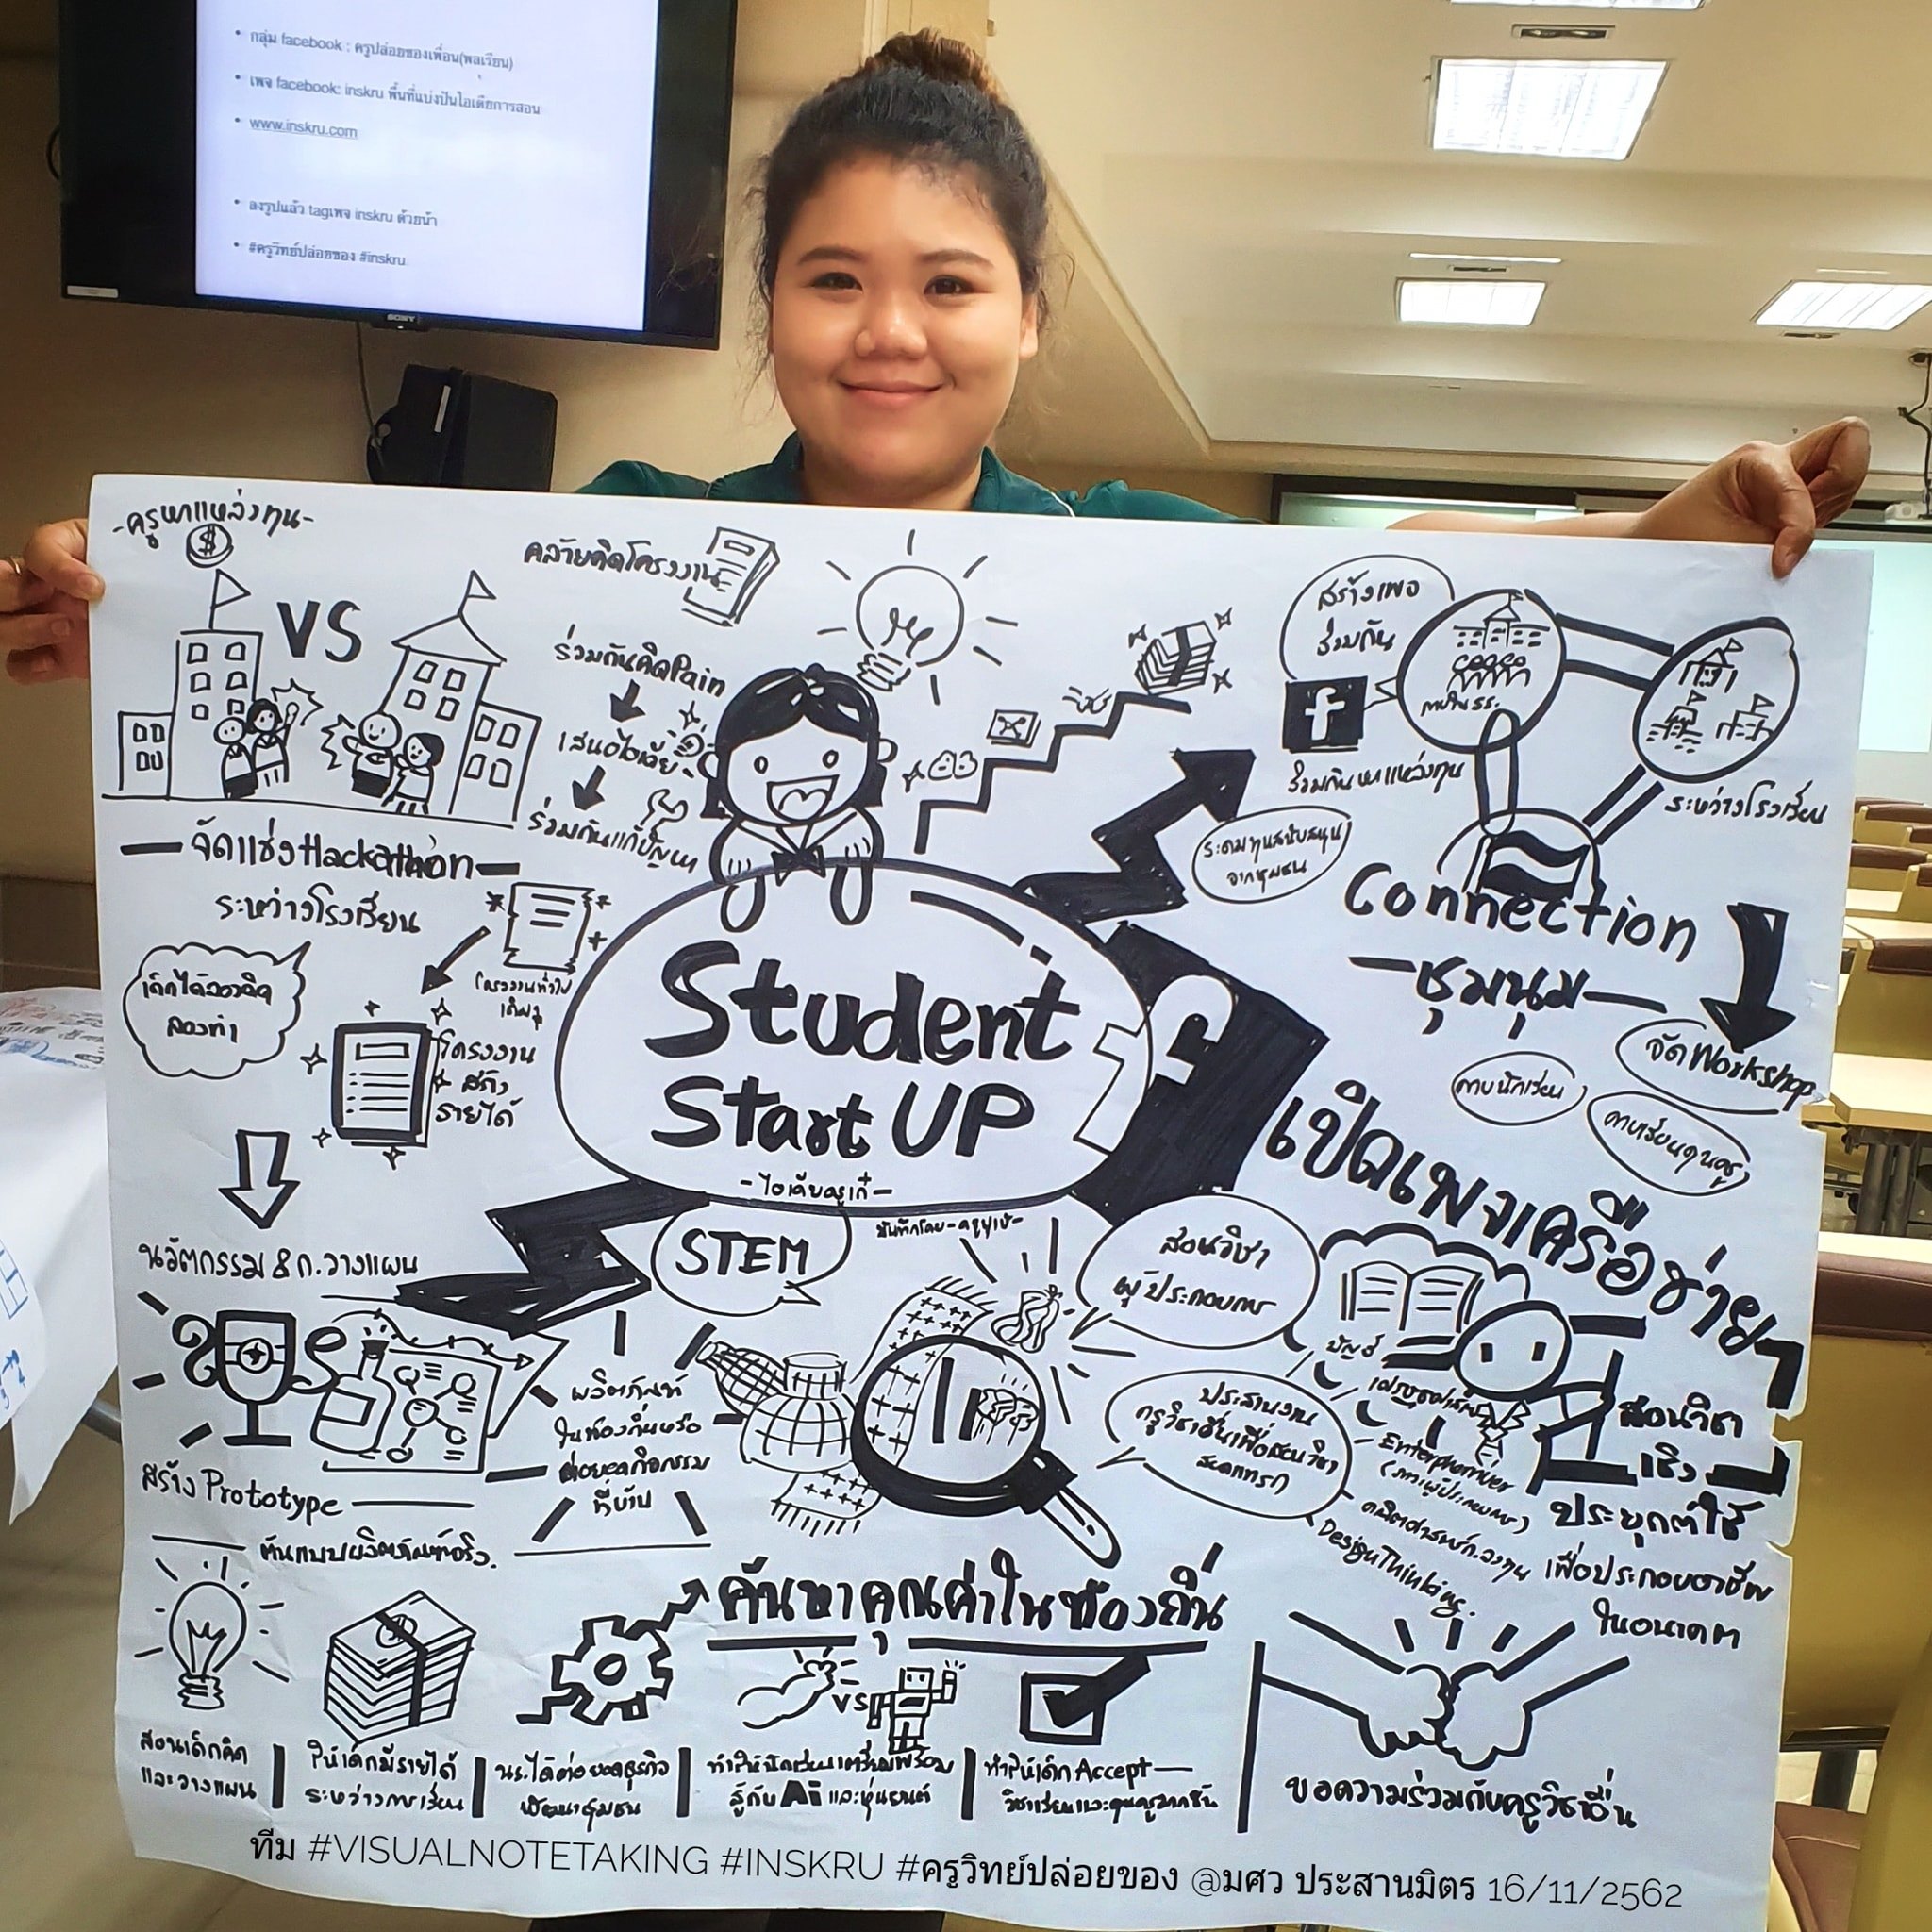 กลุ่ม facebook : ครูปล่อยของเพื่อน(พลเรียน)
เพจ facebook: inskru พื้นที่แบ่งปันไอเดียการสอน
www.inskru.com
ลงรูปแล้ว tagเพจ inskru ด้วยน้า
#ครูวิทย์ปล่อยของ #inskru
SONY
-ครูหาแหล่งทุน-
$
VS
คล้ายคิดโครงงาน
ร่วมกันคิดPain
เสนอไอเดีย
ร่วมกันแก้ปัญหา
จัดแข่งHackathon
ระหว่างโรงเรียน
เด็กได้ลองคิด
ลองทำ
โครงงานทั่วไป
เดิมๆ
โครงงาน
สร้าง
รายได้
สร้างเพจ
ร่วมกัน
f
ภายใน รร.
ร่วมกันหาแหล่งทุน
ระหว่างโรงเรียน
ระดมทุนสนับสนุน
จากชุมชน
Connection
-ชุมนุม-
จัดWorkshop
Student
Start UP
-ไอเดียครูเก๋-
f
เปิดเพจเครือข่ายฯ
นวัตกรรม & ก.วางแผน
STEM
สอนวิชา
ผู้ประกอบการ
บัญชี
เศรษฐศาสตร์
ประสานงาน
ครูวิชาอื่นเพื่อสอนวิชา
สอดแทรก
(การผู้ประกอบการ)
คณิตศาสตร์ก.ลงทุน
Design Thinking.
สอนวิชา
เชิง
ประยุกต์ใช้
เพื่อประกอบอาชีพ
ในอนาคต
ผลิตภัณฑ์
ในท้องถิ่นหรือ
ต่อยอดกิจกรรม
ที่บ้าน
สร้าง Prototype
ต้นแบบผลิตภัณฑ์จริง.
ค้นหาคุณค่าในท้องถิ่น
VS
สอนเด็กคิด
และวางแผน
ให้เด็กมีรายได้
ระหว่างการเรียน
นร.ได้ต่อยอดธุรกิจ
พัฒนาชุมชน
ทำให้นักเรียนเตรียมพร้อม
สู้กับ Ai และหุ่นยนต์
ทำให้เด็ก Accept
วิชาเรียนและคุณครูมากขึ้น
ขอความร่วมกับครูวิชาอื่น
ทีม #VISUALNOTETAKING #INSKRU #ครูวิทย์ปล่อยของ @มศว ประสานมิตร 16/11/2562